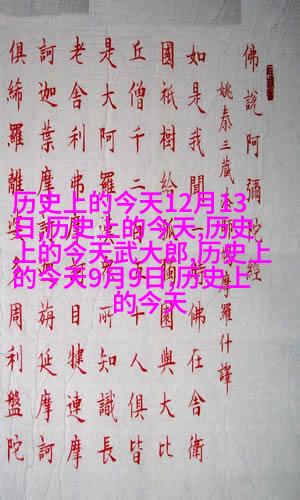 佛說阿彌陀經
姚秦三藏法師鳩摩羅什譯
如是我聞一時佛在舍衛
國祇樹給孤獨園與大比
丘僧千二百五十人俱皆
是大阿羅漢眾所知識長
老舍利弗摩訶目犍連摩
訶迦葉摩訶迦旃延摩訶
俱絺羅離婆多周利盤陀
历史上的今天12月13
日,历史上的今天,历史
上的今天武大郎,历史上
的今天9月9日,历史上
的今天